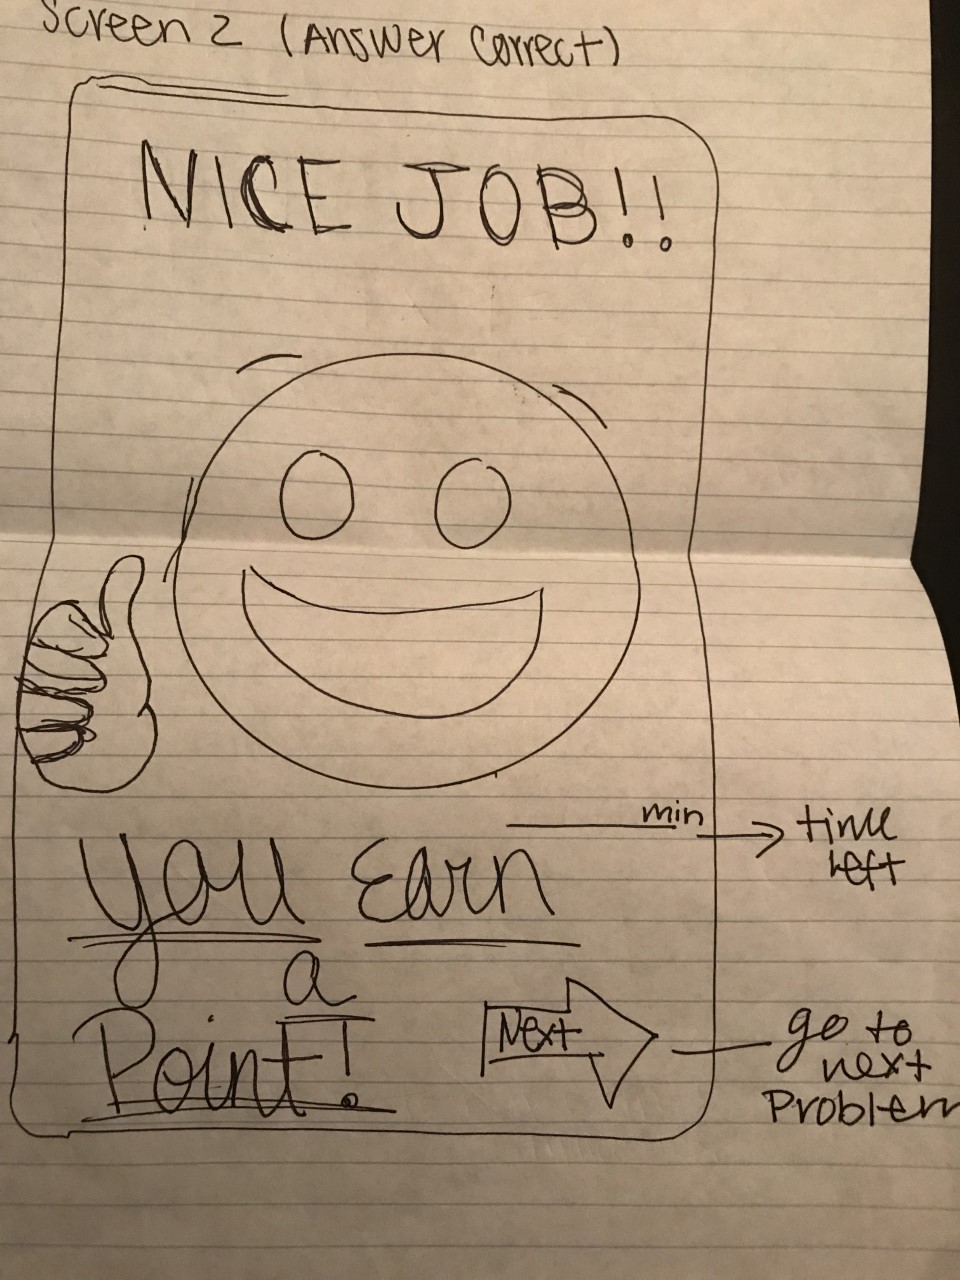 Screen 2 (Answer Correct)
NICE JOB!!
min
time
left
you Earn
a
Point!
Next
go to
next
Problem